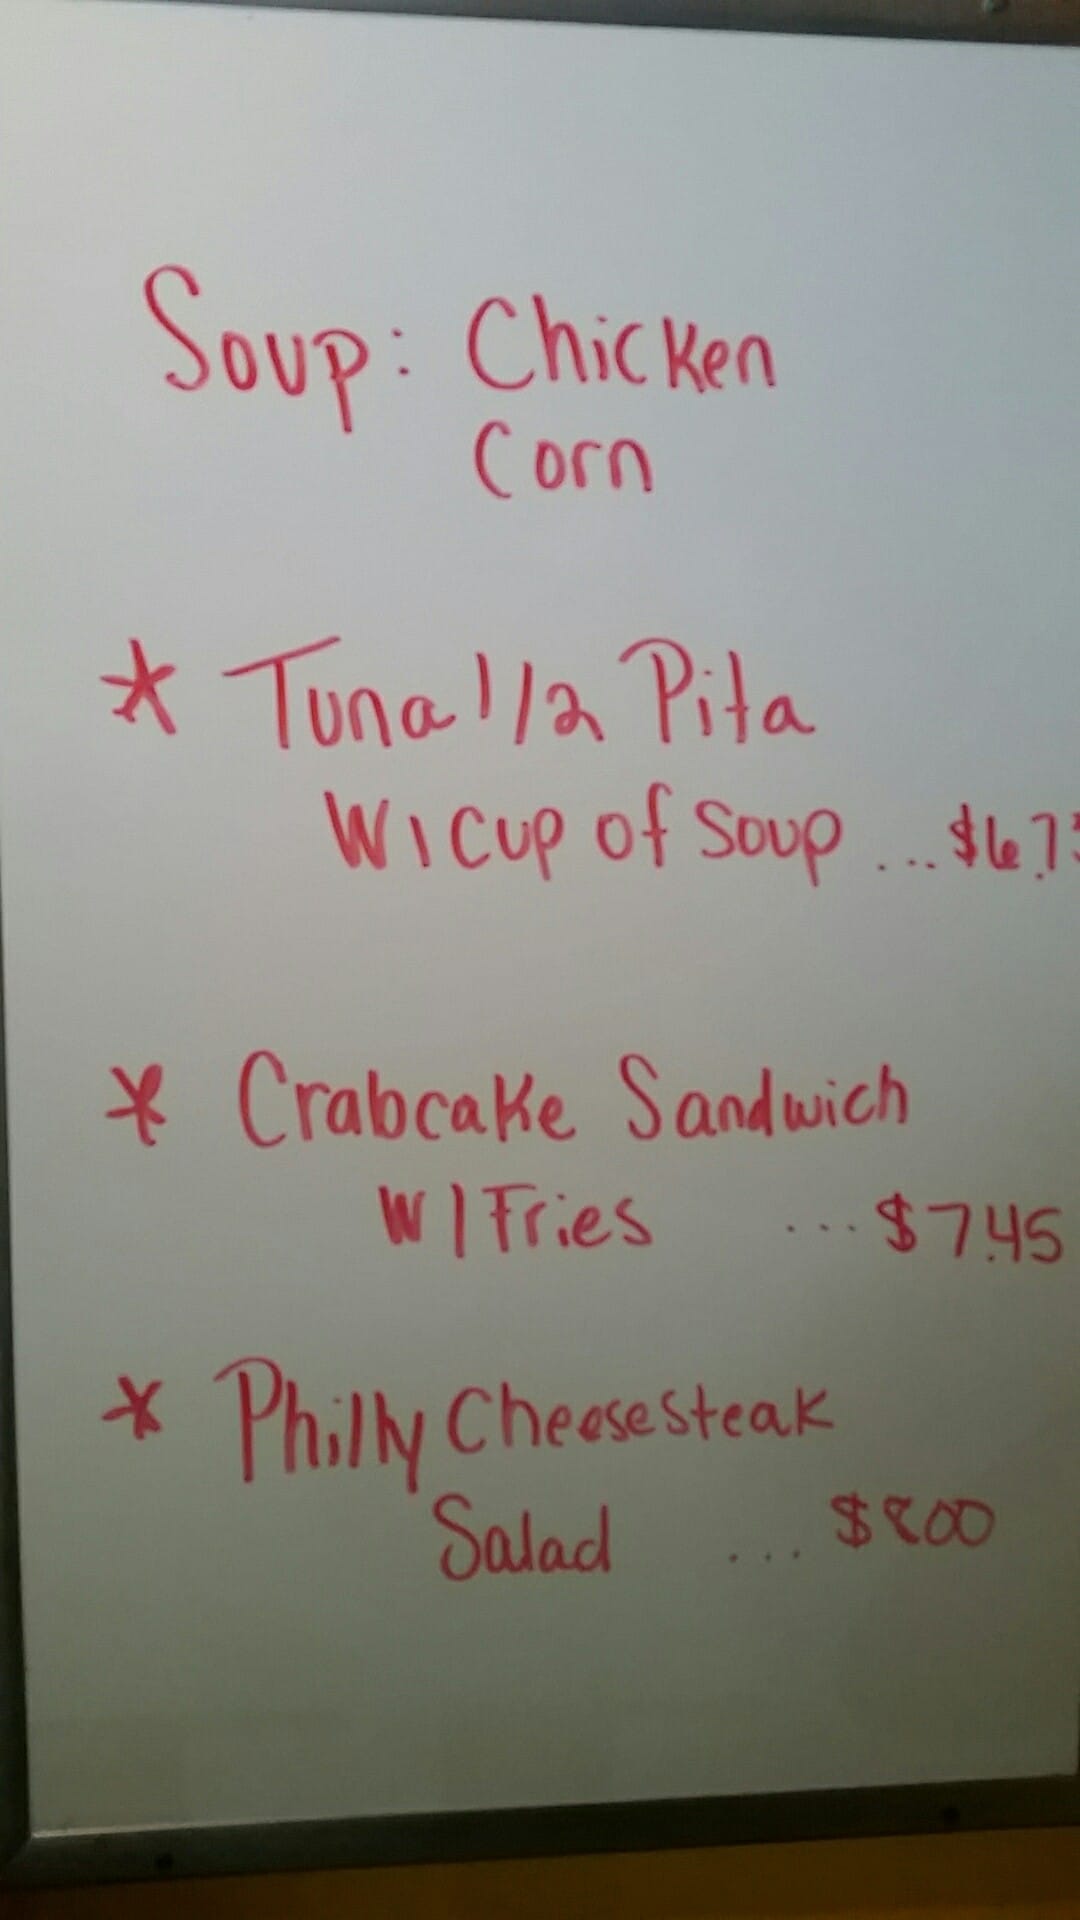 Soup: Chicken
Corn
* Tuna 1/2 Pita
W/ Cup of Soup ...
* Crabcake Sandwich
W/ Fries ... $7.45
* Philly Cheesesteak
Salad ... $8.00